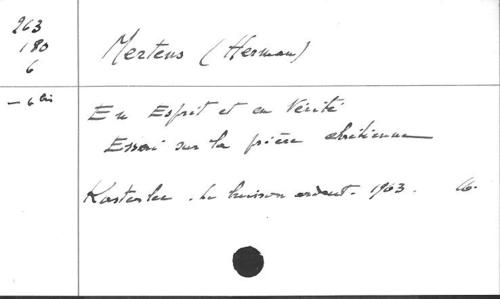 263
180
6
Mertens (Herman)
— 6 bis
En Esprit et en Vérité
Essai sur la prière chrétienne
Kasterlee. Le buisson ardent. 1963. 16.